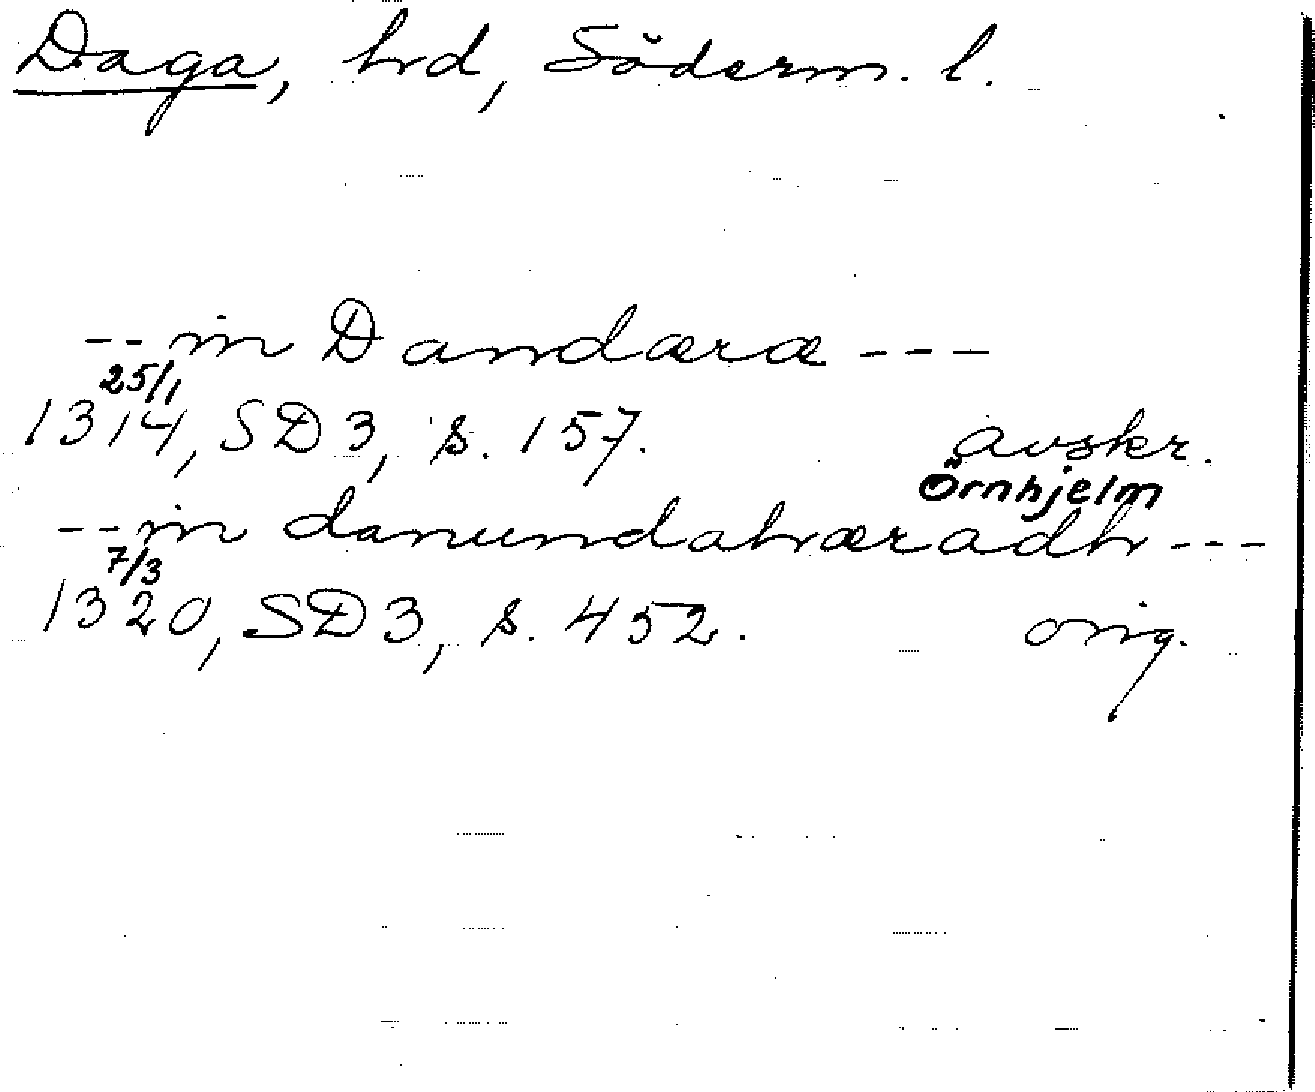 Daga, hd, Söderm. l.
-- in Dandæræ ---
25/1
1314, SD 3, s. 157. avskr.
Örnhjelm
-- in danundahæradh ---
7/3
1320, SD 3, s. 452. orig.